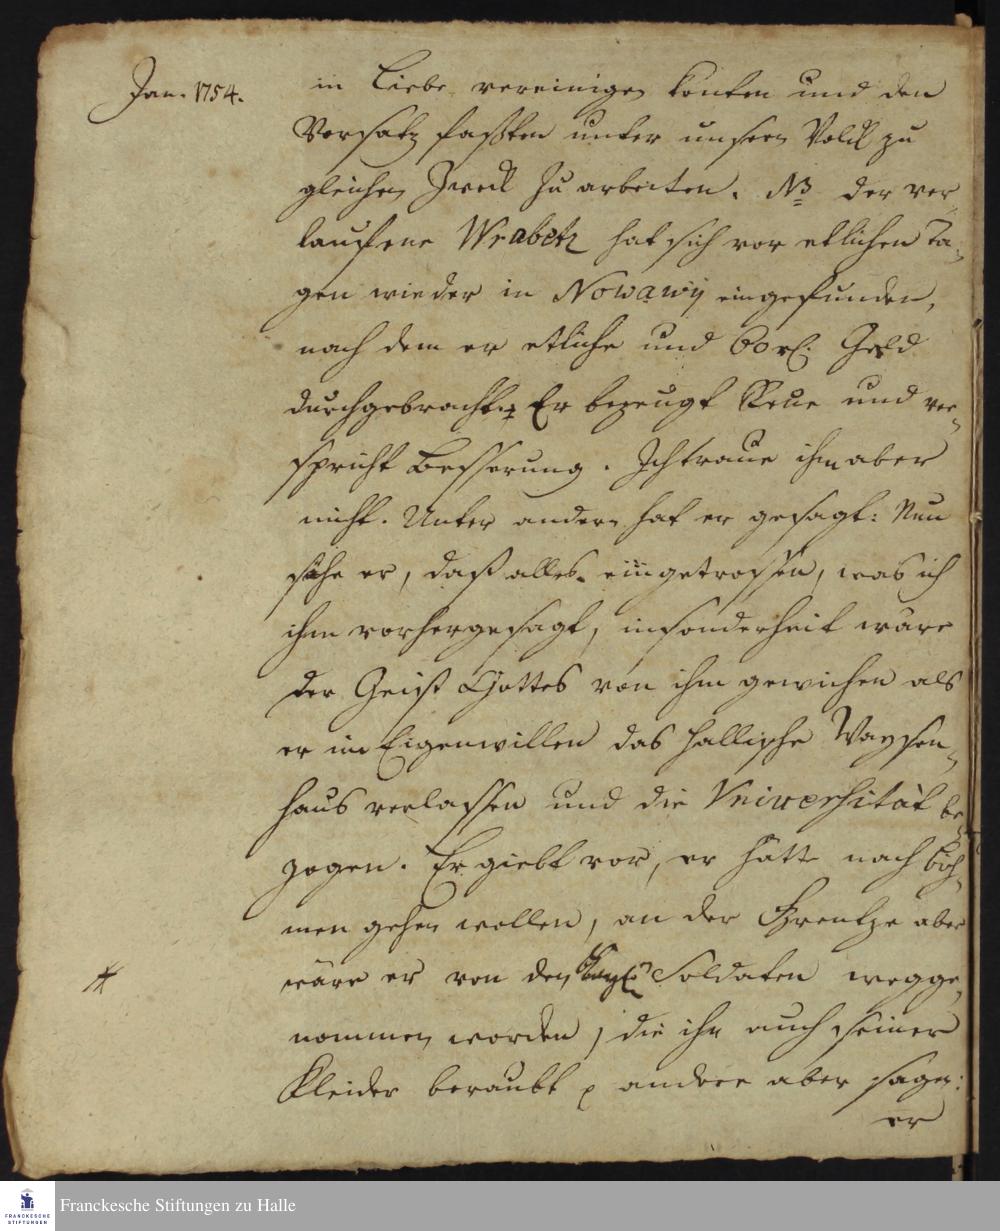 Jan. 1754.
in Liebe vereinigen konten und den
Vorsatz faßten unter unserm Volck zu
gleichen Zweck zu arbeiten. NB der ver
lauffene Wrabetz hat sich vor etlichen Ta-
gen wieder in Nowawÿ eingefunden,
nach dem er etliche und 60 rl. Geld
durchgebracht. Er bezeugt Reue und ver-
spricht Besserung. Ich traue ihm aber
nicht. Unter andern hat er gesagt: Nun
sähe er, daß alles eingetroffen, was ich
ihm vorhergesagt, insonderheit wäre
der Geist Gottes von ihm gewichen als
er im Eigenwillen das Hallische Waysen-
haus verlassen und die Vniversität be-
zogen. Er giebt vor, er hätte nach Böh-
men gehen wollen, an der Grentze aber
wäre er von den Soldaten wegge-
nommen worden, die ihn auch seiner
Kleider beraubt andere aber sagen:
er
Franckesche Stiftungen zu Halle
FRANCKESCHE
STIFTUNGEN